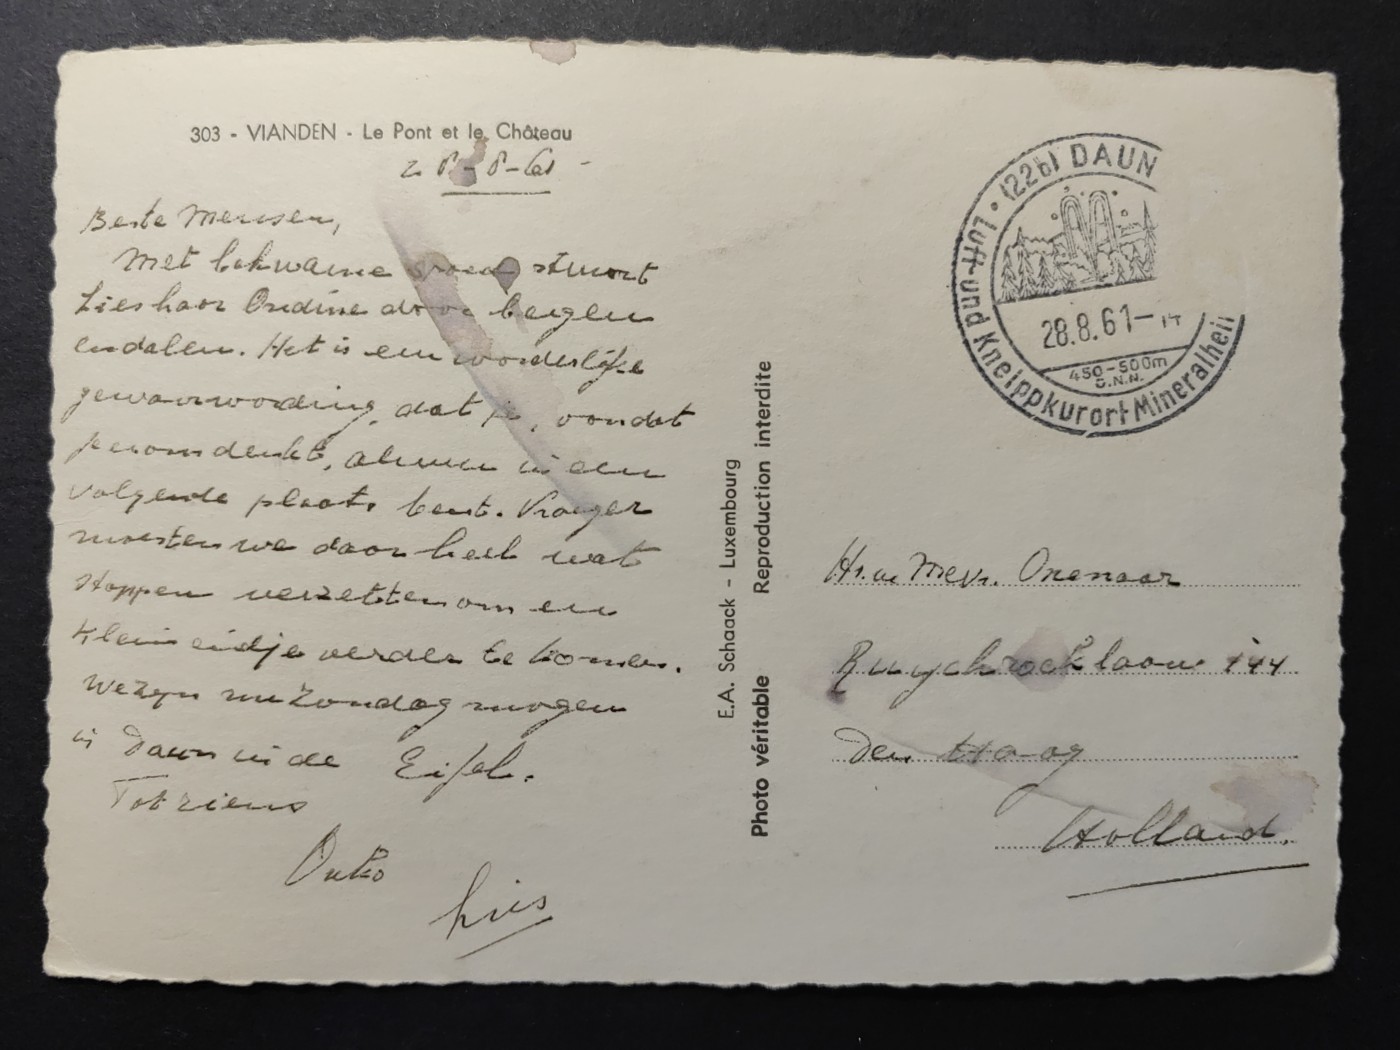 303 - VIANDEN - Le Pont et le Château
28-8-61 -
Beste Mensen,
Met bekwame spoed stuurt
Lies haar Ondine door bergen
en dalen. Het is een wonderlijke
gewaarwording, dat je, voordat
je erom denkt, alweer in een
volgende plaats bent. Vroeger
moesten we daar heel wat
stappen verzetten om een
klein eindje verder te komen.
We zijn nu Zondagmorgen
in Daun in de Eifel.
Tot ziens
Lies
E.A. Schaack - Luxembourg
Photo véritable Reproduction interdite
(22b) DAUN
Luft- und Kneippkurort Mineralheil
28.8.61-
450-500m
ü.N.N.
Hr. en Mevr. Onenaar
Ruychrocklaan 144
Den Haag
Holland.